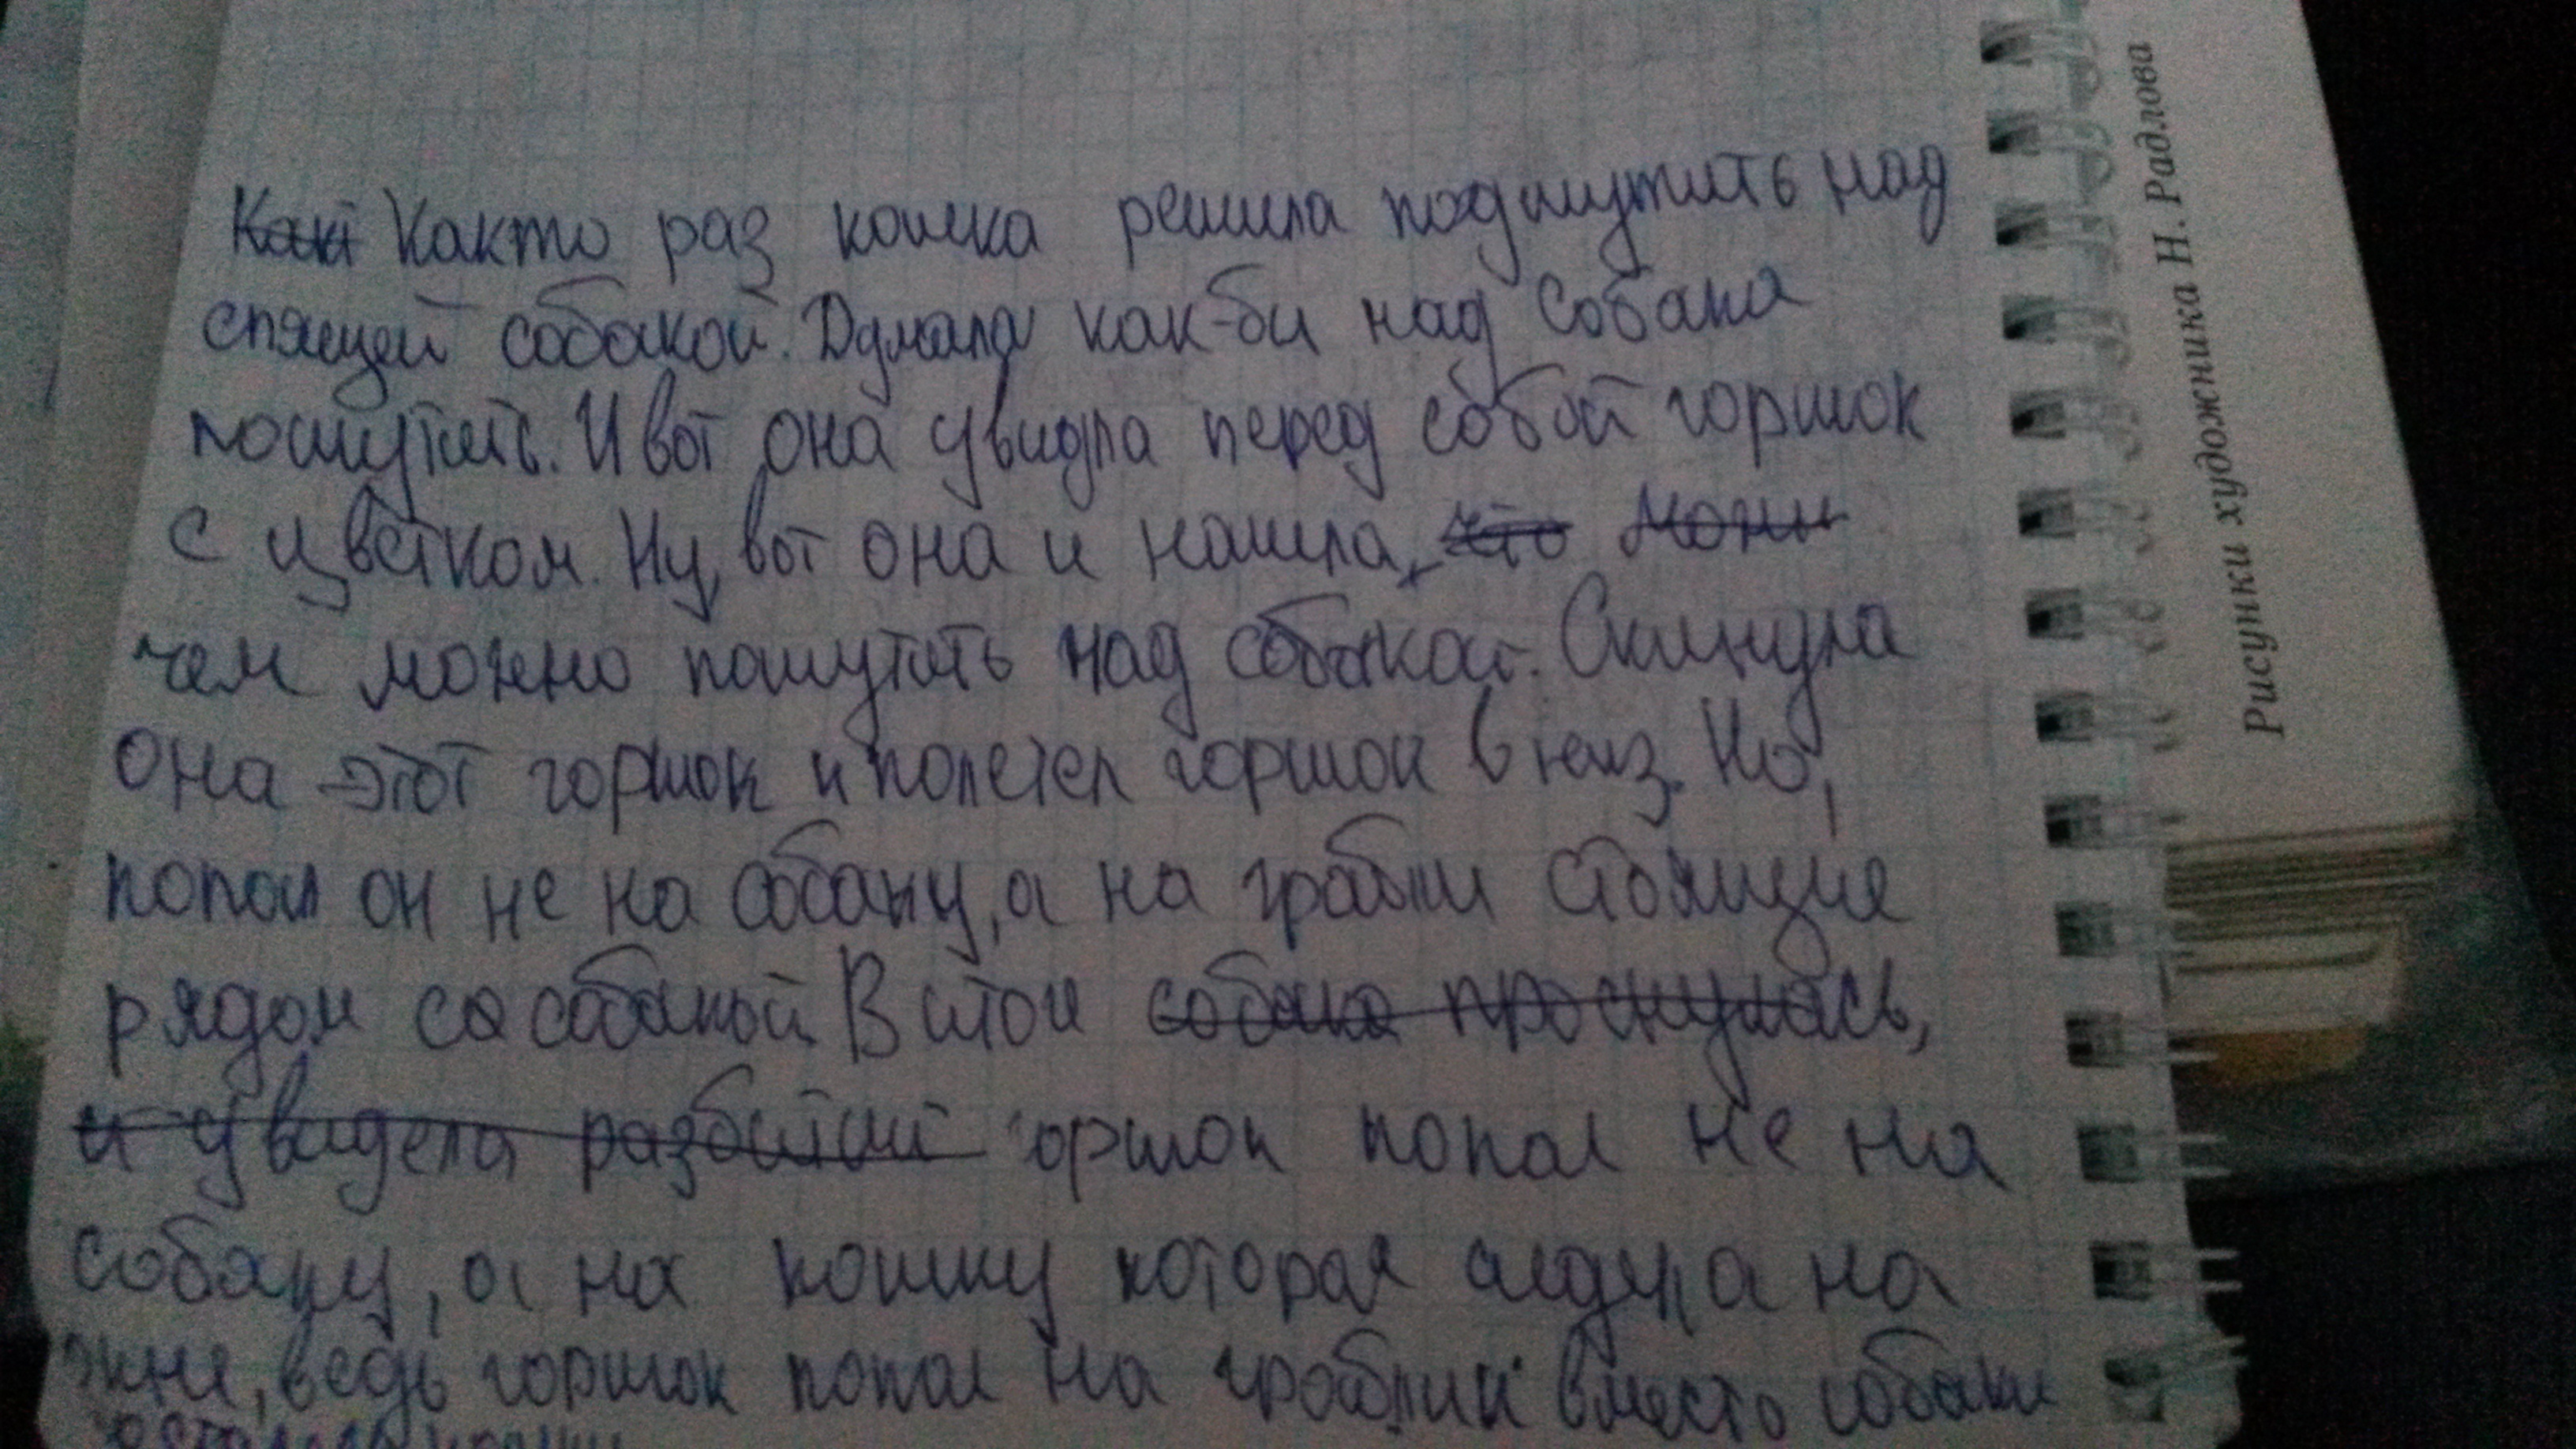 Както раз кошка решила подшутить над
спящей собакой. Думала как-би над собака
пошутить. И вот она увидла перед собой горшок
с цветком. Ну, вот она и нашла,
чем можно пошутить над собакой. Скинула
она этот горшок и полетел горшок в низ. Но,
попал он не на собаку, а на грабли стоящие
рядом со собакой. В итои собака проснулась,
и увидела разбитий горшок попал не на
собаку, а на кошку которая сидела на
окне, ведь горшок попал на граблии вместо собаки
Рисунки художника Н. Радлова